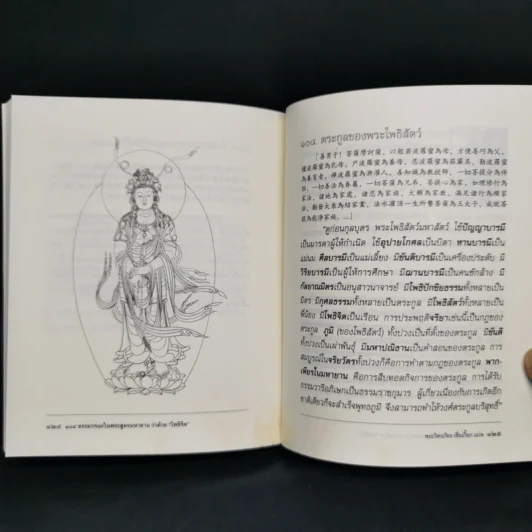 ๑๒๔ ๑๐๘ ธรรมวจนะในพระสูตรมหายาน ว่าด้วย "โพธิจิต"
๑๐๘. ตระกูลของพระโพธิสัตว์
「善男子！菩薩摩訶薩，以般若波羅蜜為母，方便善巧為父，
檀波羅蜜為乳母，尸波羅蜜為養母，忍波羅蜜為莊嚴具，勤波羅蜜
為養育者，禪波羅蜜為浣濯人，善知識為教授師，一切菩提分為伴
侶，一切善法為眷屬，一切菩薩為兄弟，菩提心為家，如理修行為
家法，諸地為家處，諸忍為家族，大願為家教，滿足諸行為順家
法，勸發大乘為紹家業，法水灌頂一生所繫菩薩為王太子，成就菩
提為能淨家族。...」
"ดูก่อนกุลบุตร พระโพธิสัตว์มหาสัตว์ ใช้ปัญญาบารมี
เป็นมารดาผู้ให้กำเนิด ใช้อุปายโกศลเป็นบิดา ทานบารมีเป็น
แม่นม ศีลบารมีเป็นแม่เลี้ยง มีขันติบารมีเป็นเครื่องประดับ มี
วิริยบารมีเป็นผู้ให้การศึกษา มีฌานบารมีเป็นคนซักล้าง มี
กัลยาณมิตรเป็นอนุสาวนาจารย์ มีโพธิปักขิยธรรมทั้งหลายเป็น
มิตร มีกุศลธรรมทั้งหลายเป็นตระกูล มีโพธิสัตว์ทั้งหลายเป็น
พี่น้อง มีโพธิจิตเป็นเรือน การประพฤติจริยาเช่นนี้เป็นกฎของ
ตระกูล ภูมิ (ของโพธิสัตว์) ทั้งปวงเป็นที่ตั้งของตระกูล มีขันติ
ทั้งปวงเป็นเผ่าพันธุ์ มีมหาปณิธานเป็นคำสอนของตระกูล การ
สมบูรณ์ในจริยวัตรทั้งปวงก็คือการทำตามกฎของตระกูล พาก-
เพียรในมหายาน คือการสืบทอดกิจการของตระกูล การได้รับ
ธรรมวารีอภิเษกเป็นธรรมราชกุมาร ผู้เกี่ยวเนื่องกับการเกิดอีก
ชาติเดียวก็จะสำเร็จพุทธภูมิ จึงสามารถทำให้วงศ์ตระกูลบริสุทธิ์"
๑๒๕